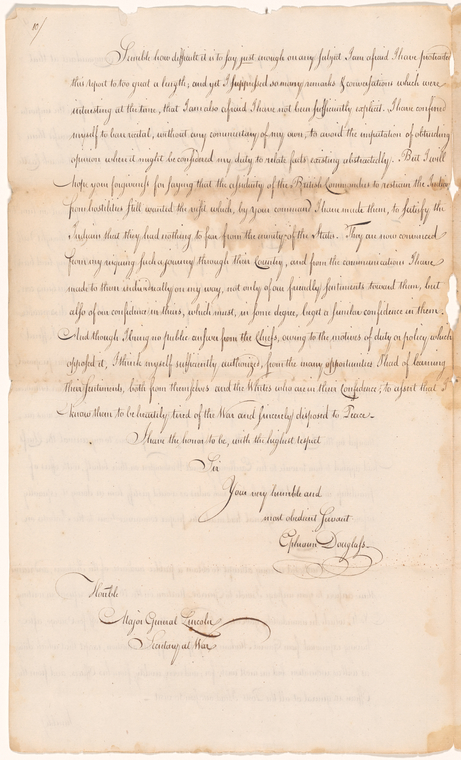 10/
Sensible how difficult it is to say just enough on any subject I am afraid I have protracted
this report to too great a length; and yet I suppressed so many remarks & conversations which were
interesting at the time, that I am also afraid I have not been sufficiently explicit. I have confined
myself to bare recital, without any commentary of my own, to avoid the imputation of obtruding
opinion where it might be considered my duty to relate facts existing abstractedly. But I will
hope your forgiveness for saying that the assiduity of the British Commandes to restrain the Indians
from hostilities still wanted the visit which, by your command I have made them, to satisfy the
Indians that they had nothing to fear from the enmity of the States. They are now convinced
from my risquing such a journey through their Country, and from the communications I have
made to them individually on my way, not only of our friendly sentiments toward them, but
also of our confidence in theirs, which must, in some degree, beget a similar confidence in them.
And though I bring no public answer from the Chiefs, owing to the motives of duty or policy, which
opposed it, I think myself sufficiently authorized, from the many opportunities I had of learning
their sentiments, both from themselves and the Whites who are in their Confidence; to assert that I
know them to be heartily tired of the War and sincerely disposed to Peace.
I have the honor to be, with the highest respect
Sir
Your very humble and
most obedient Servant
Ephraim Douglass.
Honble
Major General Lincoln
Secretary at War